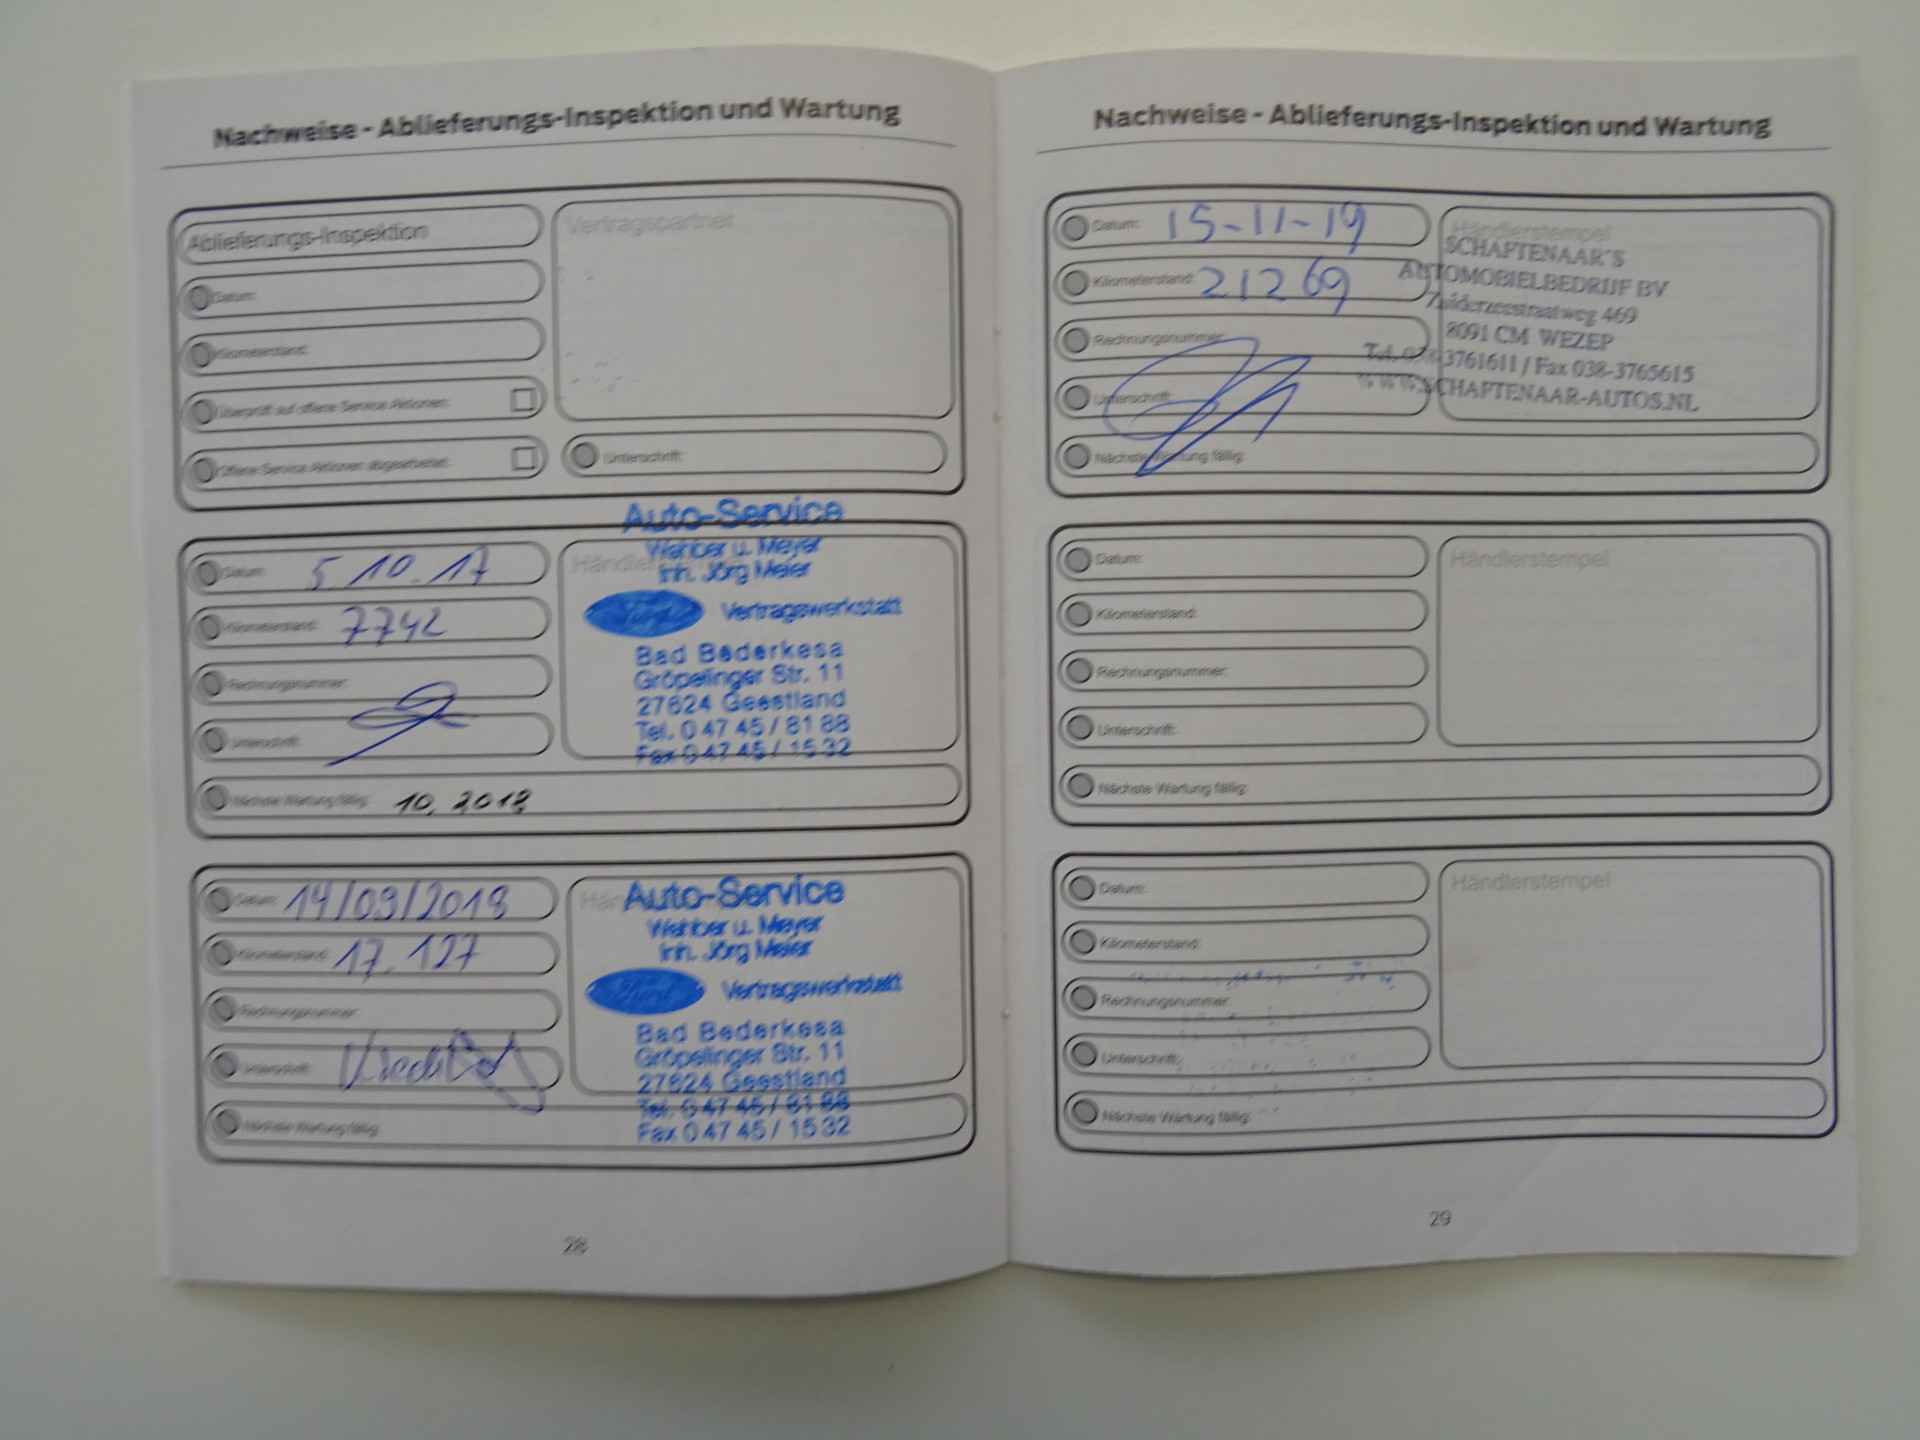 Nachweise - Ablieferungs-Inspektion und Wartung
Ablieferungs-Inspektion
Vertragspartner
Datum:
Kilometerstand:
Überprüft auf offene Service Aktionen:
Offene Service Aktionen abgearbeitet:
Unterschrift:
Datum: 5.10.17
Kilometerstand: 7742
Rechnungsnummer:
Unterschrift:
Nächste Wartung fällig: 10, 2018
Auto-Service
Wehber u. Meyer
Inh. Jörg Meier
Ford Vertragswerkstatt
Bad Bederkesa
Gröpelinger Str. 11
27624 Geestland
Tel. 0 47 45 / 81 88
Fax 0 47 45 / 15 32
Datum: 14/09/2018
Kilometerstand: 17.127
Rechnungsnummer:
Unterschrift:
Nächste Wartung fällig:
Auto-Service
Wehber u. Meyer
Inh. Jörg Meier
Ford Vertragswerkstatt
Bad Bederkesa
Gröpelinger Str. 11
27624 Geestland
Tel. 0 47 45 / 81 88
Fax 0 47 45 / 15 32
28
Nachweise - Ablieferungs-Inspektion und Wartung
Datum: 15-11-19
Kilometerstand: 21269
Rechnungsnummer:
Unterschrift:
Nächste Wartung fällig:
Händlerstempel
SCHAFTENAAR'S
AUTOMOBIELBEDRIJF BV
Zuiderzeestraatweg 469
8091 CM WEZEP
Tel. 038-3761611 / Fax 038-3765615
WWW.SCHAFTENAAR-AUTOS.NL
Datum:
Kilometerstand:
Rechnungsnummer:
Unterschrift:
Nächste Wartung fällig:
Händlerstempel
Datum:
Kilometerstand:
Rechnungsnummer:
Unterschrift:
Nächste Wartung fällig:
Händlerstempel
29